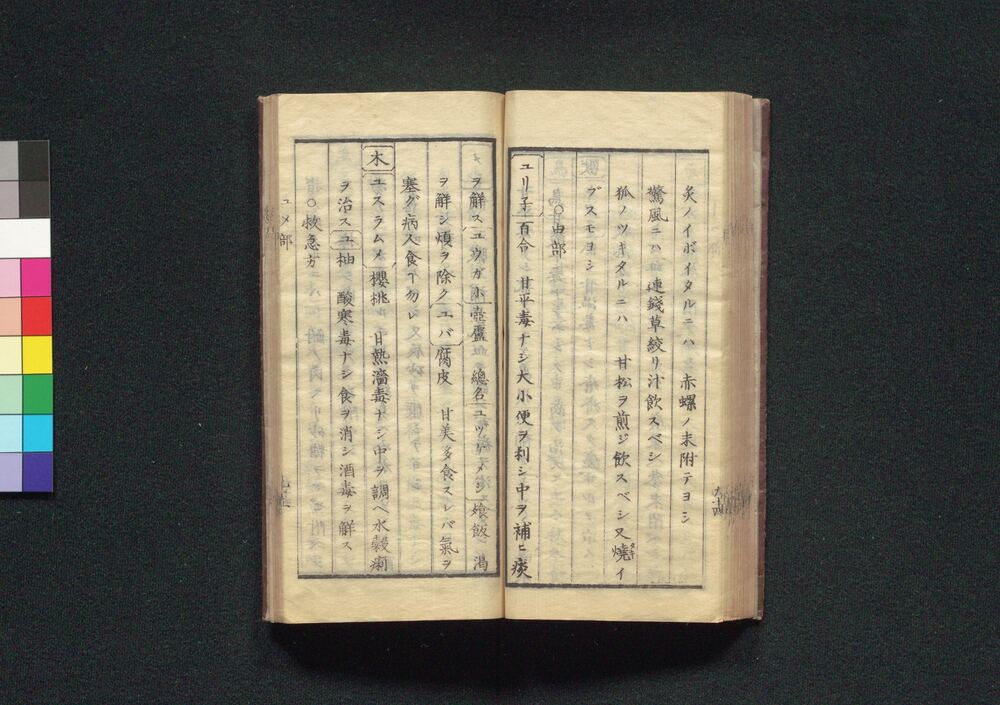 炙ノイボイタルニハ 赤螺ノ末附テヨシ
驚風ニハ 連錢草絞リ汁飲スベシ
狐ノツキタルニハ 甘松ヲ煎ジ飲スベシ又燒イ
ブスモヨシ
〇由部
ユリ子 百合 甘平毒ナシ大小便ヲ利シ中ヲ補ヒ痰
ヲ解ス ユウガホ 壺盧 總名 ユヅケメシ 飧飯 渇
ヲ解シ煩ヲ除ク ユバ 腐皮 甘美多食スレバ氣ヲ
塞グ病人食フ勿レ
木 ユスラムメ 櫻桃 甘熱濇毒ナシ中ヲ調ヘ水穀痢
ヲ治ス ユ 柚 酸寒毒ナシ食ヲ消シ酒毒ヲ解ス
〇救急方
ユメ部